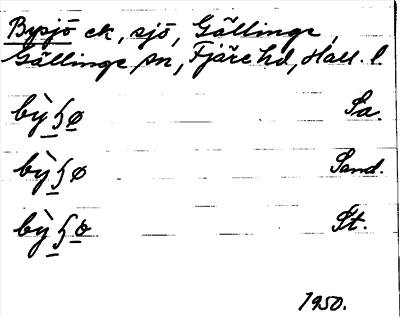 Bysjö ek, sjö, Gällinge,
Gällinge sn, Fjäre hd, Hall. l.
bỳɧø Sa.
bỳɧø Sand.
bỳɧo St.
1950.